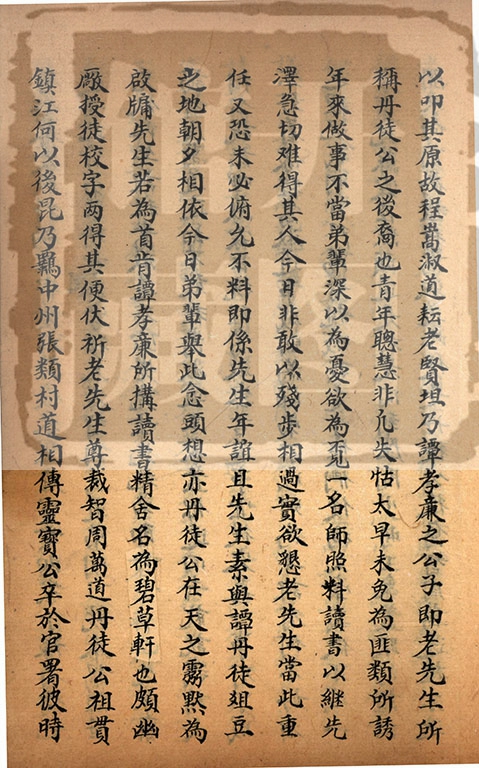 以叩其原故程嵩淑道耘老賢坦乃譚孝廉之公子即老先生所
稱丹徒公之後裔也青年聰慧非凢失怙太早未免為匪類所誘
年來做事不當弟輩深以為憂欲為覓一名師照料讀書以継先
澤急切难得其人今日非敢以殘步相過實欲懇老先生當此重
任又恐未必俯允不料即係先生年誼且先生素與譚丹徒爼豆
之地朝夕相依今日弟輩舉此念頭想亦丹徒公在天之靈黙為
啟牖先生若為首肯譚孝廉所搆讀書精舍名為碧草軒也頗幽
厰授徒校字两得其便伏祈老先生尊裁智周萬道丹徒公祖貫
鎮江何以後昆乃羈中州張類村道相傳靈寶公卒於官署彼時